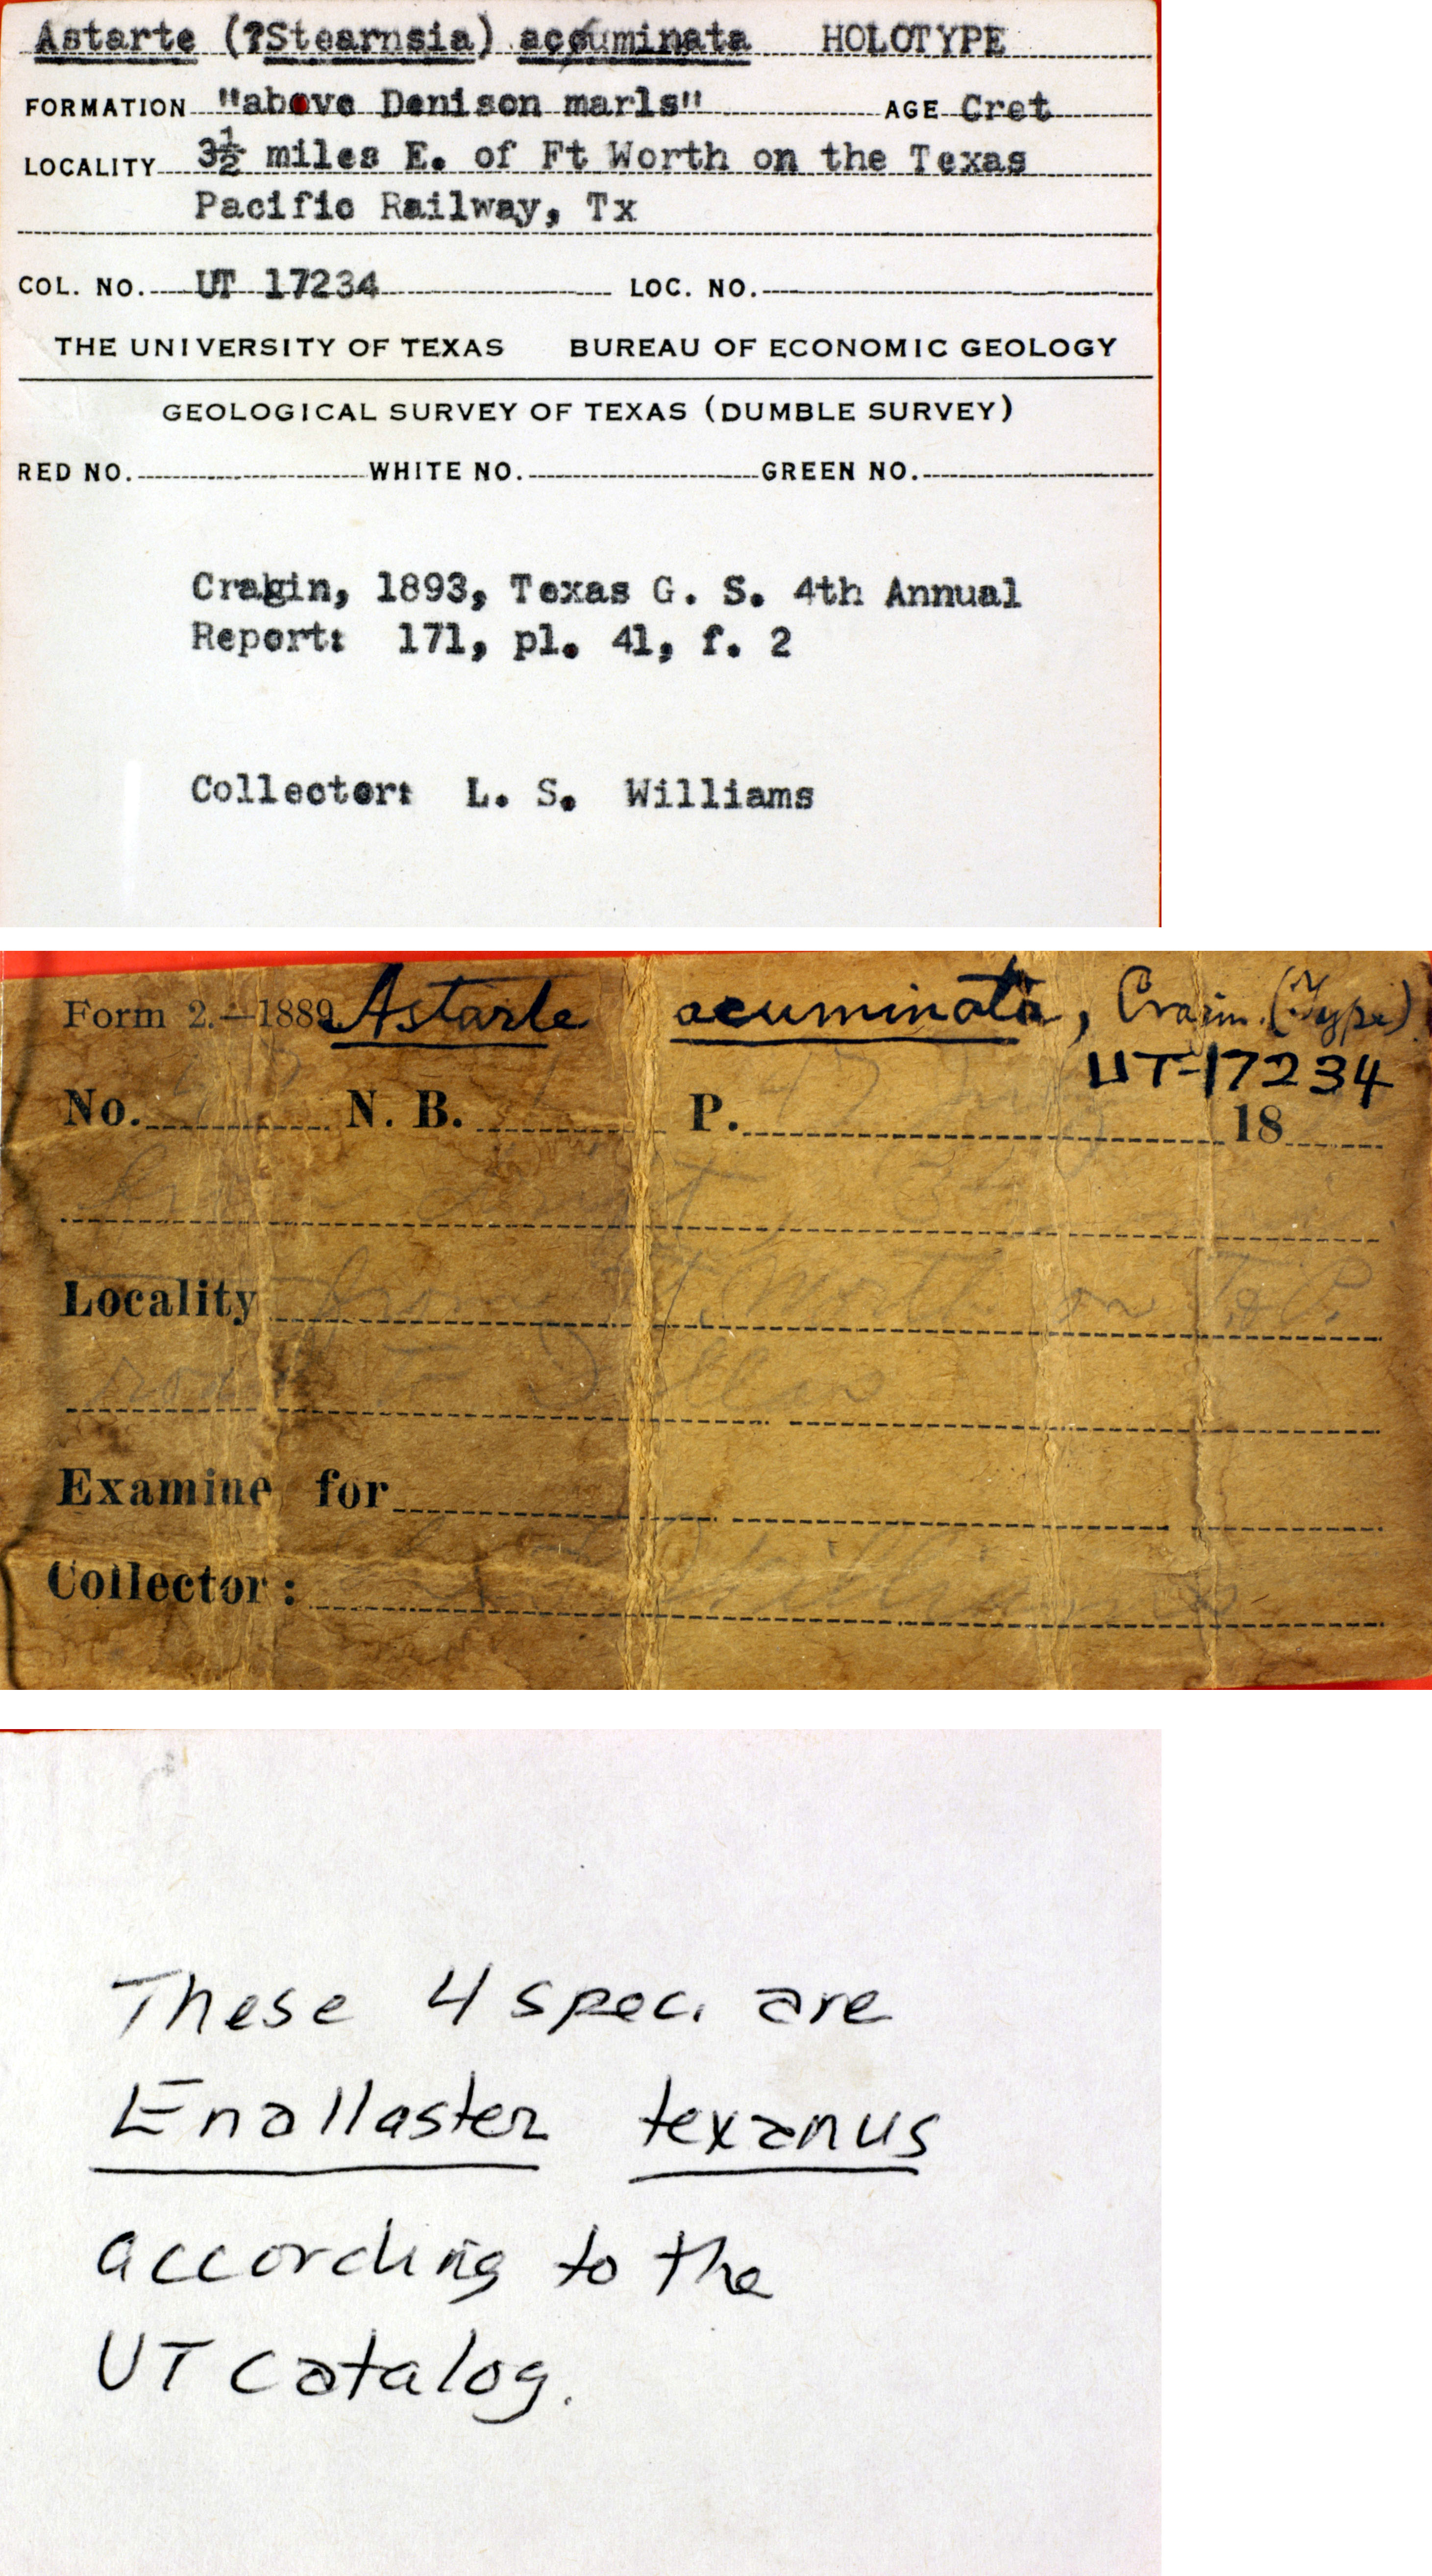 Astarte (?Stearnsia) acuminata HOLOTYPE
FORMATION "above Denison marls" AGE Cret
LOCALITY 3½ miles E. of Ft Worth on the Texas
Pacific Railway, Tx
COL. NO. UT 17234 LOC. NO.
THE UNIVERSITY OF TEXAS BUREAU OF ECONOMIC GEOLOGY
GEOLOGICAL SURVEY OF TEXAS (DUMBLE SURVEY)
RED NO. WHITE NO. GREEN NO.
Cragin, 1893, Texas G. S. 4th Annual
Report: 171, pl. 41, f. 2
Collector: L. S. Williams
Form 2.—1889 Astarte acuminata, Cragin. (Type)
UT-17234
No. N. B. P. 18
Locality from Ft. Worth on T. & P.
road to Dallas
Examine for
Collector: Williams
These 4 spec. are
Enallaster texanus
according to the
UT catalog.